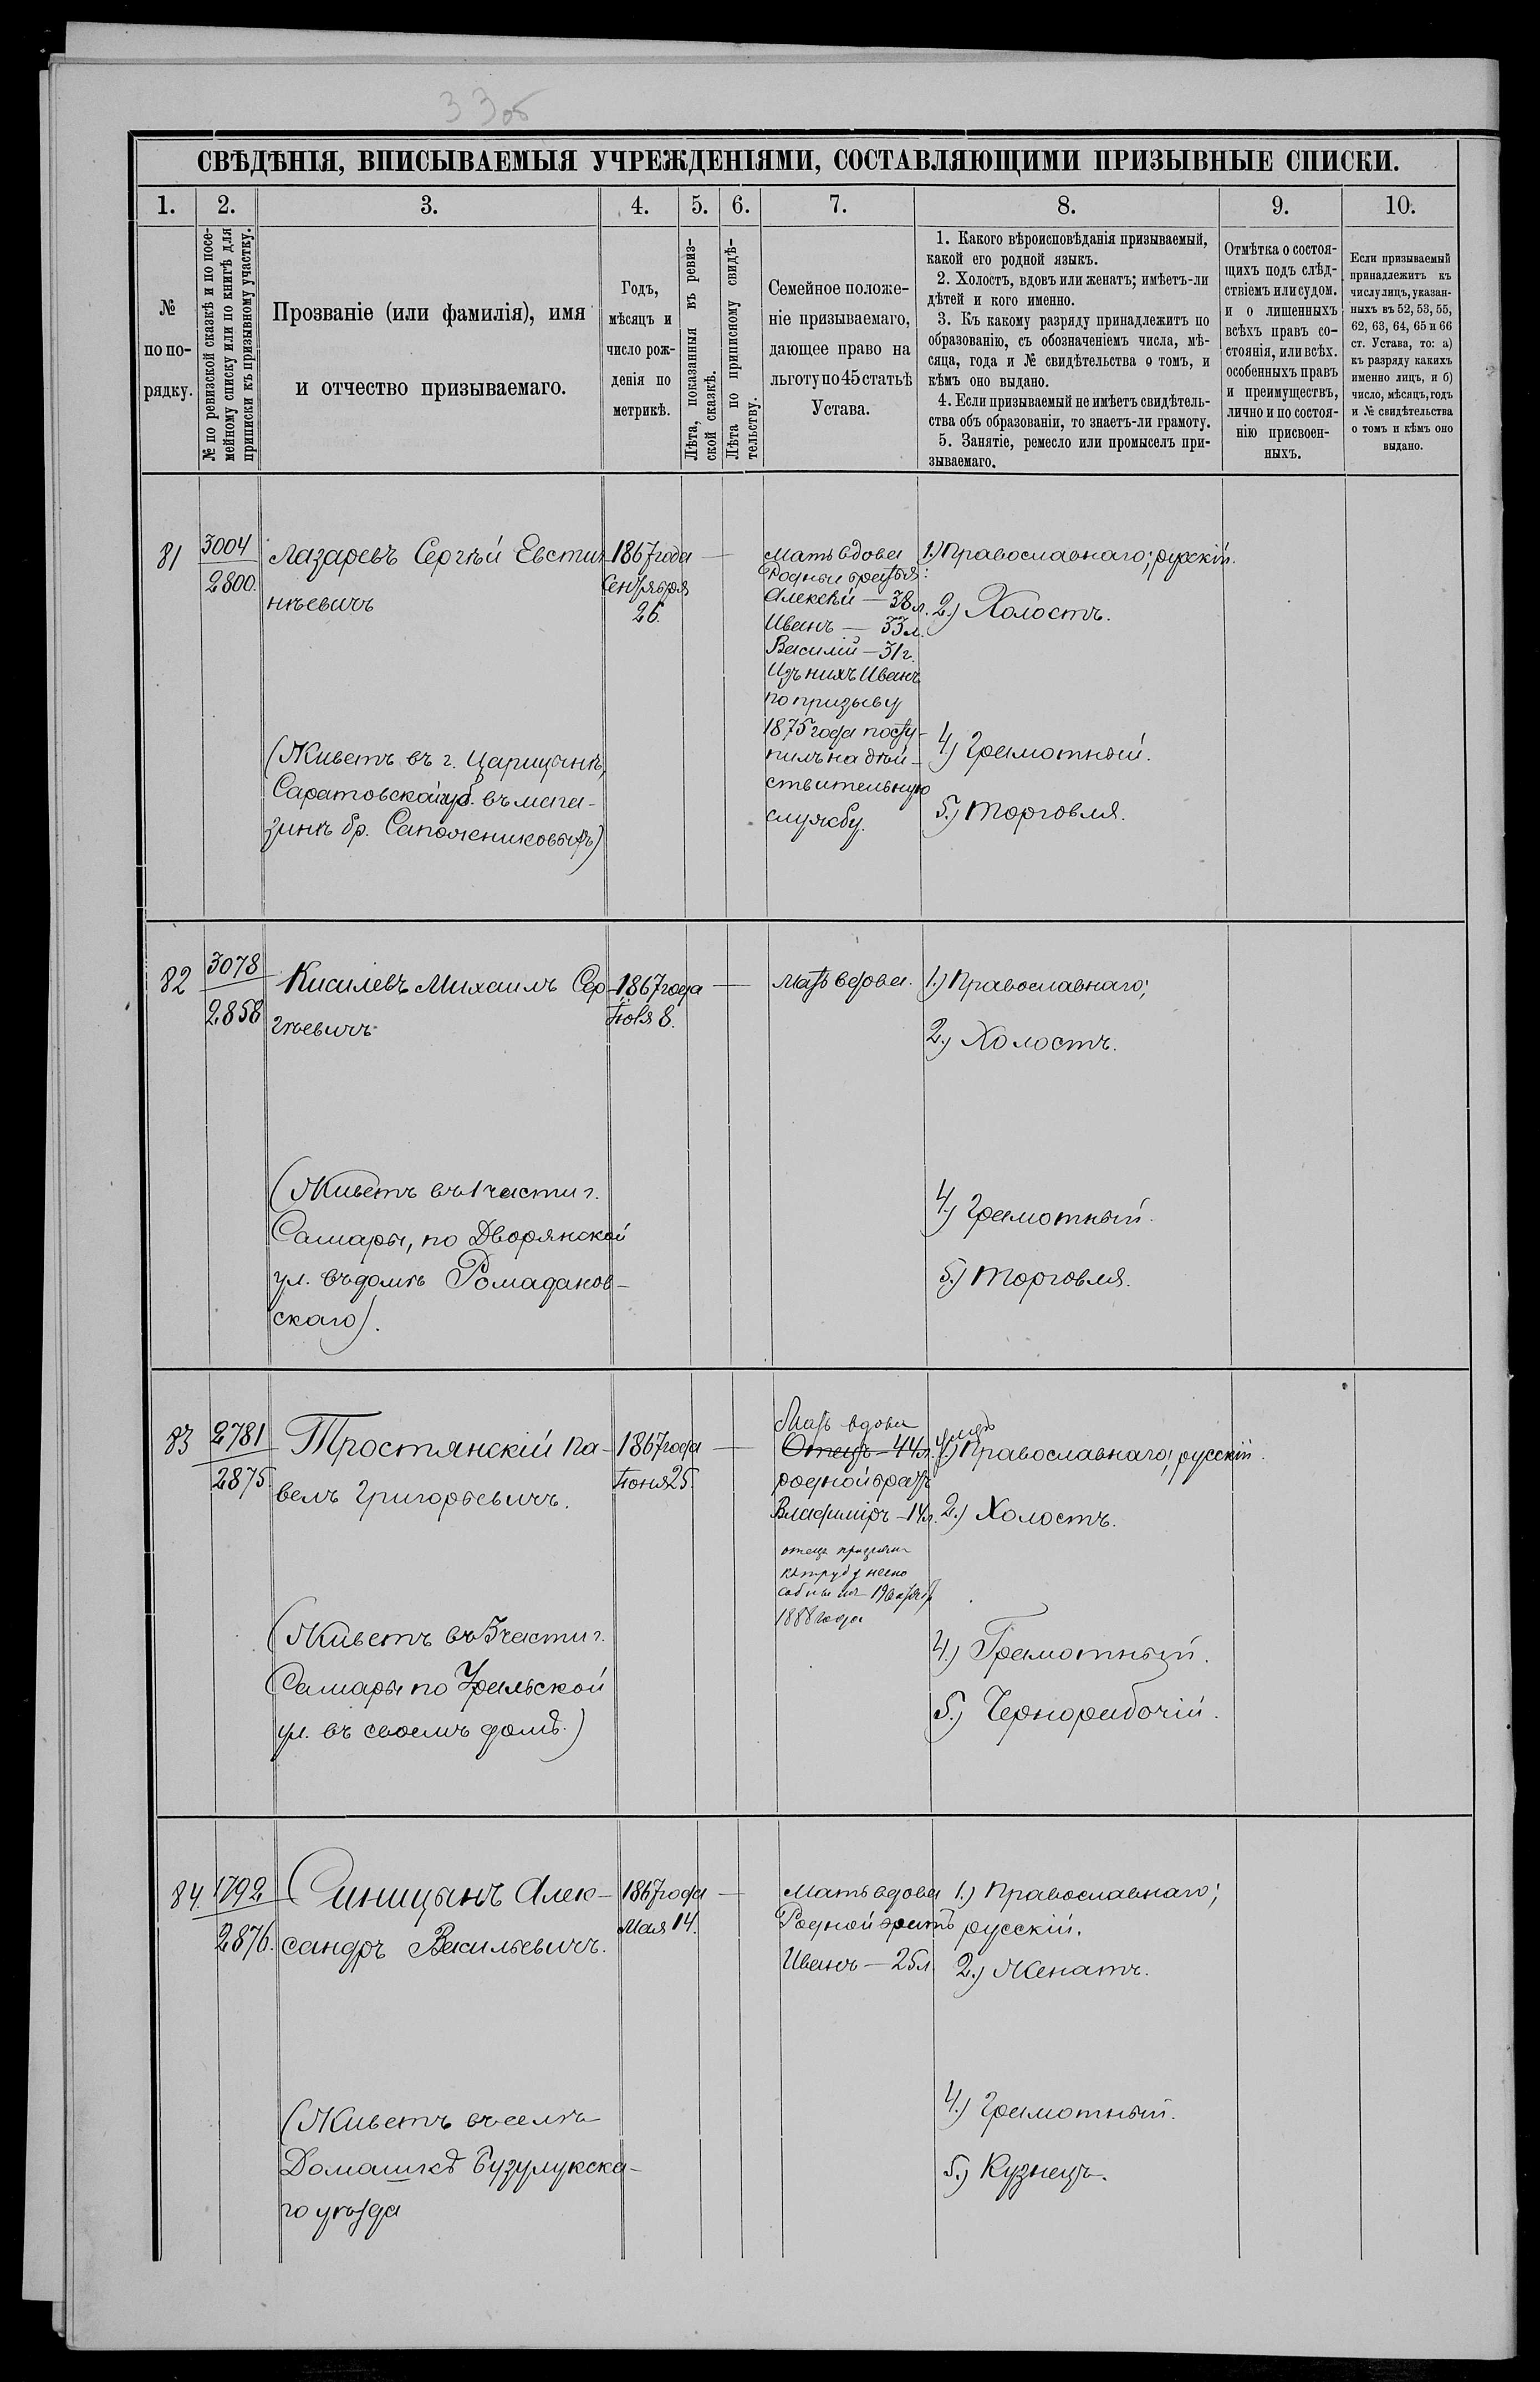 33об
СВѢДѢНІЯ, ВПИСЫВАЕМЫЯ УЧРЕЖДЕНІЯМИ, СОСТАВЛЯЮЩИМИ ПРИЗЫВНЫЕ СПИСКИ.
1. 2. 3. 4. 5. 6. 7. 8. 9. 10.
№
по по-
рядку.
№ по ревизской сказкѣ и по посе-
мейному списку или по книгѣ для
приписки къ призывному участку.
Прозваніе (или фамилія), имя
и отчество призываемаго.
Годъ,
мѣсяцъ и
число рож-
денія по
метрикѣ.
Лѣта, показанныя въ ревиз-
ской сказкѣ.
Лѣта по приписному свидѣ-
тельству.
Семейное положе-
ніе призываемаго,
дающее право на
льготу по 45 статьѣ
Устава.
1. Какого вѣроисповѣданія призываемый,
какой его родной языкъ.
2. Холостъ, вдовъ или женатъ; имѣетъ-ли
дѣтей и кого именно.
3. Къ какому разряду принадлежитъ по
образованію, съ обозначеніемъ числа, мѣ-
сяца, года и № свидѣтельства о томъ, и
кѣмъ оно выдано.
4. Если призываемый не имѣетъ свидѣтель-
ства объ образованіи, то знаетъ-ли грамоту.
5. Занятіе, ремесло или промыселъ при-
зываемаго.
Отмѣтка о состоя-
щихъ подъ слѣд-
ствіемъ или судом.
и о лишенныхъ
всѣхъ правъ со-
стоянія, или всѣх.
особенныхъ правъ
и преимуществъ,
лично и по состоя-
нію присвоен-
ныхъ.
Если призываемый
принадлежитъ къ
числу лицъ, указан-
ныхъ въ 52, 53, 55,
62, 63, 64, 65 и 66
ст. Устава, то: а)
къ разряду какихъ
именно лицъ, и б)
число, мѣсяцъ, годъ
и № свидѣтельства
о томъ и кѣмъ оно
выдано.
81
3004
2800.
Лазаревъ Сергѣй Евстиг
нѣевичъ
(Живетъ въ г. Царицынѣ,
Саратовской губ. въ мага-
зинѣ бр. Сапожниковыхъ)
1867 года
Сентября
26.
—
Мать вдова
Родные братья:
Алексѣй — 38 л.
Иванъ — 33 л.
Василій — 31 г.
Изъ нихъ Иванъ
по призыву
1875 года посту-
пилъ на дѣй-
ствительную
службу.
1.) Православнаго; русскій.
2.) Холостъ.
4.) Грамотный.
5.) Торговля.
82
3078
2858
Кисилевъ Михаилъ Сер-
гѣевичъ
(Живетъ въ 1 части г.
Самары, по Дворянской
ул. въ домѣ Ромаданов-
скаго).
1867 года
8.
—
Мать вдова.
1.) Православнаго;
2.) Холостъ.
4.) Грамотный.
5.) Торговля.
83
2781
2875.
Тростянскій Па-
велъ Григорьевичъ.
(Живетъ въ 3 части г.
Самары по Уральской
ул. въ своемъ домѣ.)
1867 года
Іюня 25.
—
Мать вдова
Отецъ — 44 л. умеръ
родной братъ
Владиміръ — 14 л.
отецъ признанъ
къ труду неспо
собнымъ 19 октября
1888 года
1.) Православнаго; русскій.
2.) Холостъ.
4.) Грамотный.
5.) Чернорабочій.
84.
1792
2876.
Синицынъ Алек-
сандръ Васильевичъ.
(Живетъ въ селѣ
Домашкѣ Бузулукска-
го уѣзда
1867 года
Мая 14.
—
Мать вдова
Родной братъ
Иванъ — 25 л
1.) Православнаго;
русскій.
2.) Женатъ.
4.) Грамотный.
5.) Кузнецъ.